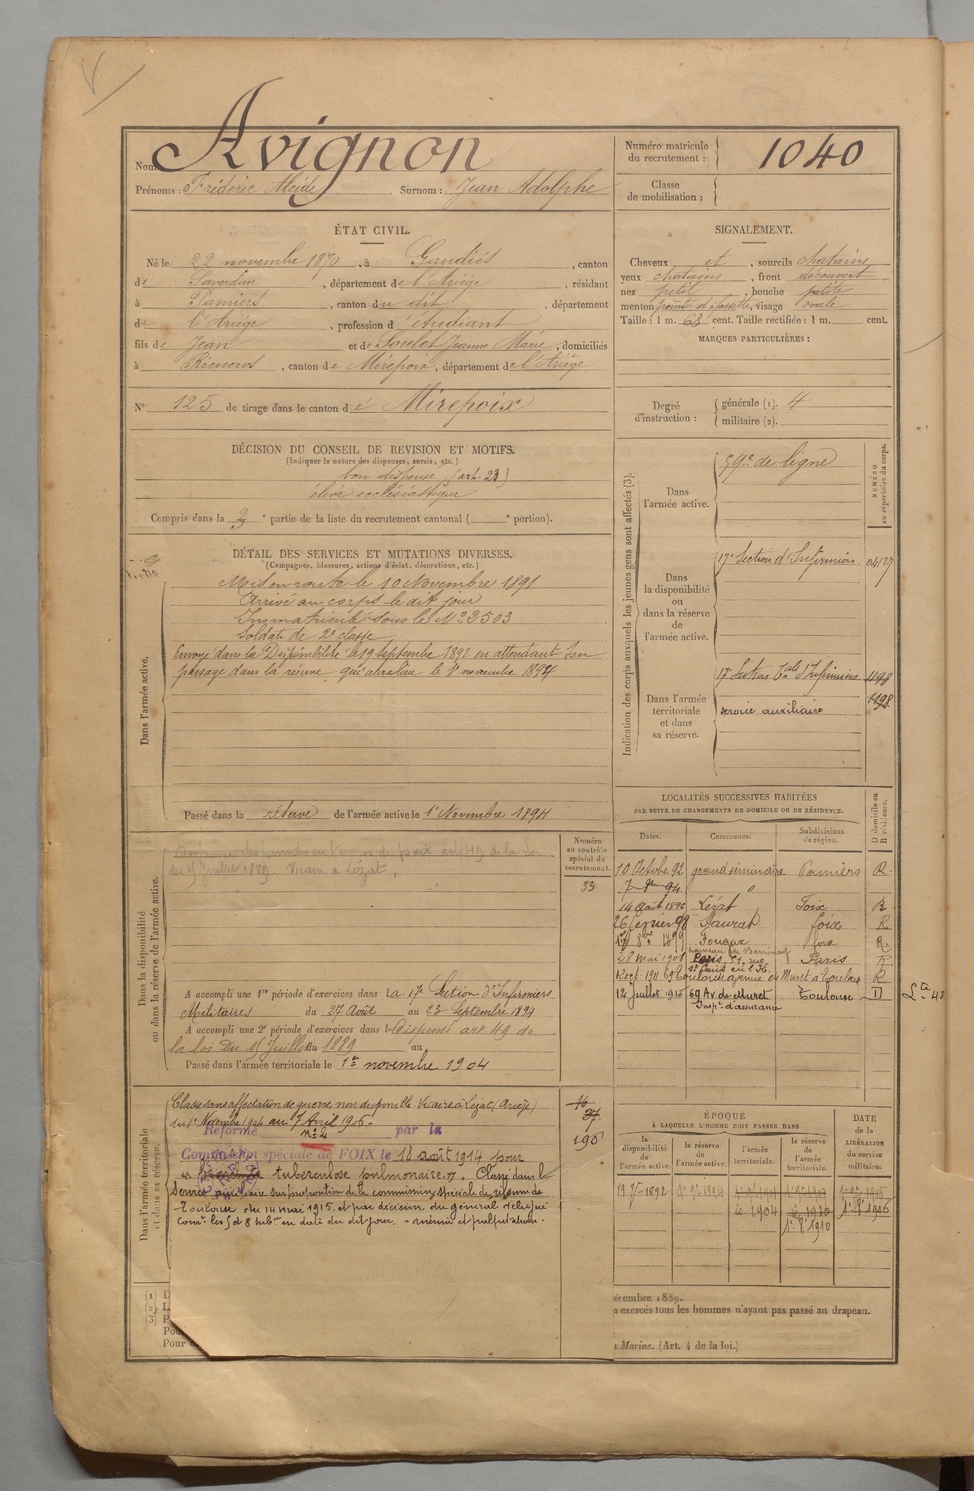 Nom Avignon
Prénoms : Frédéric Alcide Surnom : Jean Adolphe
Numéro matricule du recrutement : 1040
Classe de mobilisation :
ÉTAT CIVIL.
Né le 22 novembre 1870, à Gaudiès, canton
de Saverdun, département de l'Ariège, résidant
à Pamiers, canton du dit, département
de l'Ariège, profession d'étudiant
fils de Jean et de Soulet Jeanne Marie, domiciliés
à Rieucros, canton de Mirepoix, département de l'Ariège
N° 125 de tirage dans le canton de Mirepoix
SIGNALEMENT.
Cheveux et, sourcils chatains
yeux chatains, front découvert
nez petit, bouche petite
menton pointu et fossette, visage ovale
Taille : 1 m. 68 cent. Taille rectifiée : 1 m. cent.
MARQUES PARTICULIÈRES :
Degré d'instruction : générale (1). 4
militaire (2).
DÉCISION DU CONSEIL DE REVISION ET MOTIFS.
(Indiquer la nature des dispenses, sursis, etc.)
bon dispensé (art. 23)
élève ecclésiastique
Compris dans la 3e partie de la liste du recrutement cantonal ( e portion).
DÉTAIL DES SERVICES ET MUTATIONS DIVERSES.
(Campagnes, blessures, actions d'éclat, décorations, etc.)
Dans l'armée active.
Mis en route le 10 Novembre 1891
Arrivé au corps le dit jour
Immatriculé sous le N° 3503
Soldat de 2e classe
Envoyé dans la Disponibilité le 19 Septembre 1892 en attendant son
passage dans la réserve qui aura lieu le 1er novembre 1894
Passé dans la réserve de l'armée active le 1er Novembre 1894
Indication des corps auxquels les jeunes gens sont affectés (3).
NUMÉRO au répertoire du corps.
Dans l'armée active.
59e de ligne
Dans la disponibilité ou dans la réserve de l'armée active.
17e Section d'Infirmiers
Dans l'armée territoriale et dans sa réserve.
17e Section d'Infirmiers 1198
service auxiliaire 1198
LOCALITÉS SUCCESSIVES HABITÉES
PAR SUITE DE CHANGEMENTS DE DOMICILE OU DE RÉSIDENCE.
Dates. Communes. Subdivisions de région. D domicile ou R résidence.
10 Octobre 92 grand séminaire Pamiers R.
14 Août 1896 Lézat Foix R
26 février 98 Saurat foix R
1899 foix R.
28 mai 1908 Paris Paris R
12 oct. 1911 69 Boulard avenue de Muret à Toulouse R
12 Juillet 1915 69 Av. de Muret Toulouse D
Insp. d'assurance
Dans la disponibilité ou dans la réserve de l'armée active.
Numéro au contrôle spécial du recrutement.
33
du 15 Juillet 1889. Vicaire à Lézat.
A accompli une 1re période d'exercices dans la 17e Section d'Infirmiers
Militaires du 27 Août au 23 Septembre 1894
A accompli une 2e période d'exercices dans l Dispensé art 49 de
la loi Du 15 Juillet du 1889 au
Passé dans l'armée territoriale le 1er novembre 1904
Dans l'armée territoriale et dans sa réserve.
Classé sans affectation de guerre non disponible Vicaire à Lézat (Ariège)
du 1er Novembre 1904 au 7 Avril 1906.
Réformé n° 2 par la
Commission spéciale de FOIX le 18 août 1914 pour
tuberculose pulmonaire. Classé dans le
Service auxiliaire sur proposition de la commission spéciale de réforme de
Toulouse du 14 mai 1915 et par décision du général délégué
Comt les 5 et 8 subon en date du dit jour. "anémie et palpitations".
ÉPOQUE
À LAQUELLE L'HOMME DOIT PASSER DANS
la disponibilité de l'armée active.
la réserve de l'armée active.
l'armée territoriale.
la réserve de l'armée territoriale.
DATE de la LIBÉRATION du service militaire.
1904
1910
(1)
(2)
(3)
Pour
écembre 1889.
exercés tous les hommes n'ayant pas passé au drapeau.
Marine. (Art. 4 de la loi.)